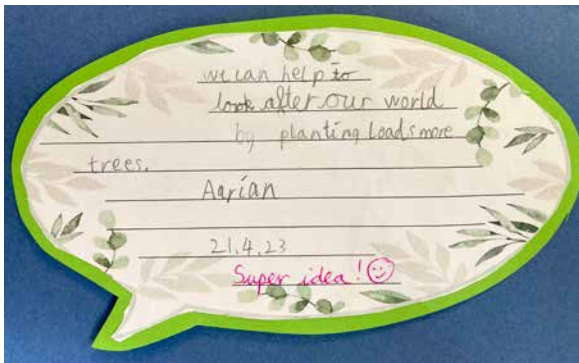 we can help to
look after our world
by planting loads more
trees.
Aarian
21.4.23
Super idea!